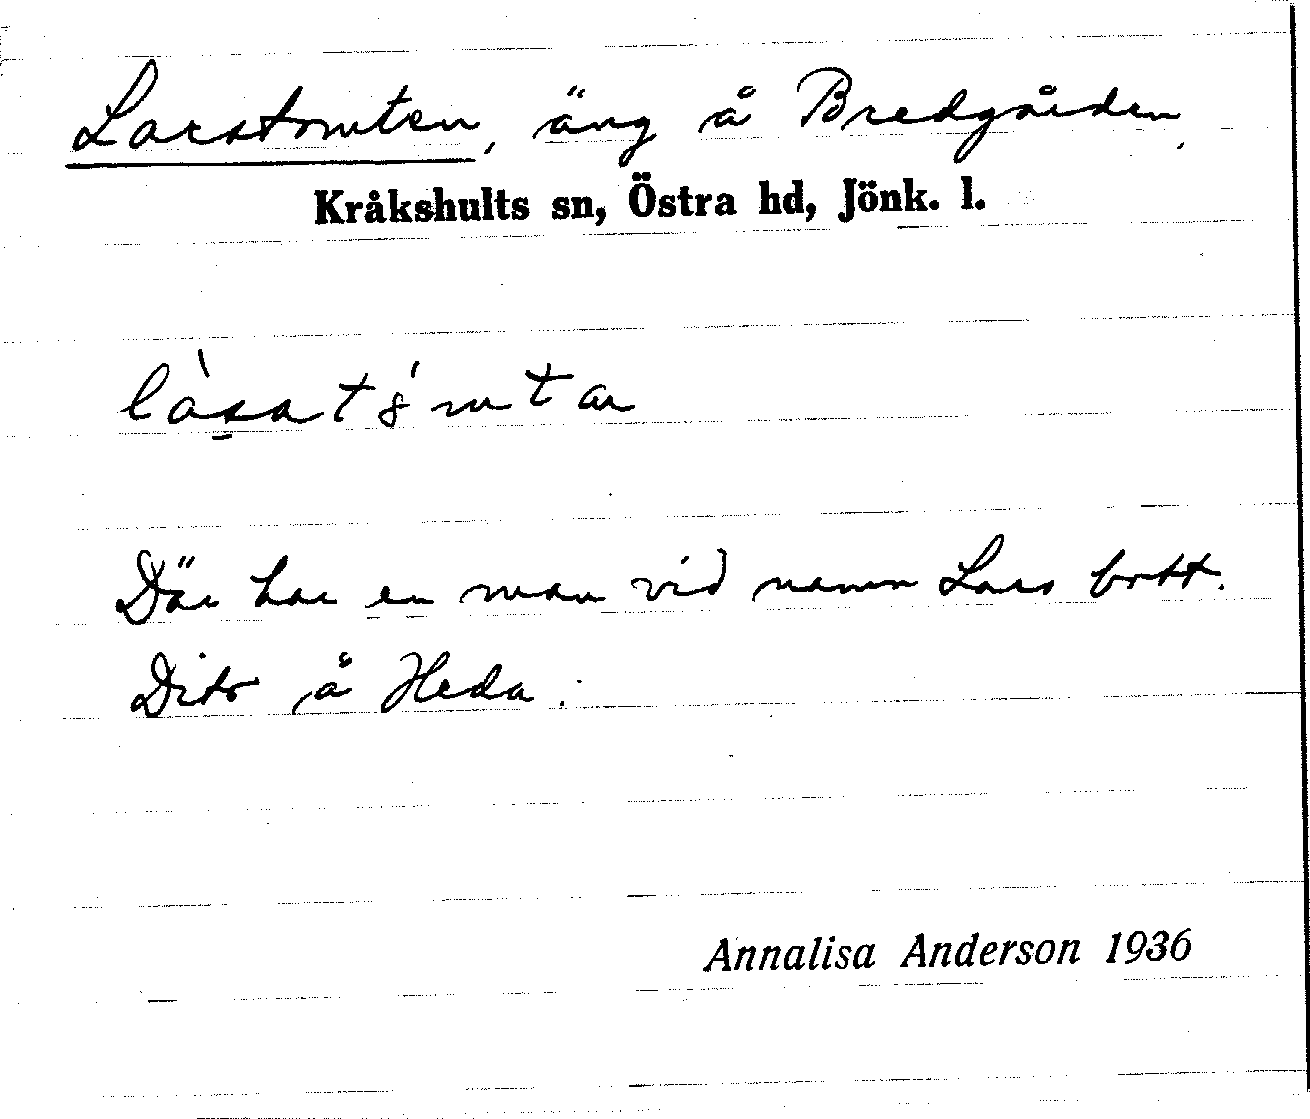 Larstomten, äng å Bredgården.
Kråkshults sn, Östra hd, Jönk. l.
Där har en man vid namn Lars bott.
Dito å Heda.
Annalisa Anderson 1936